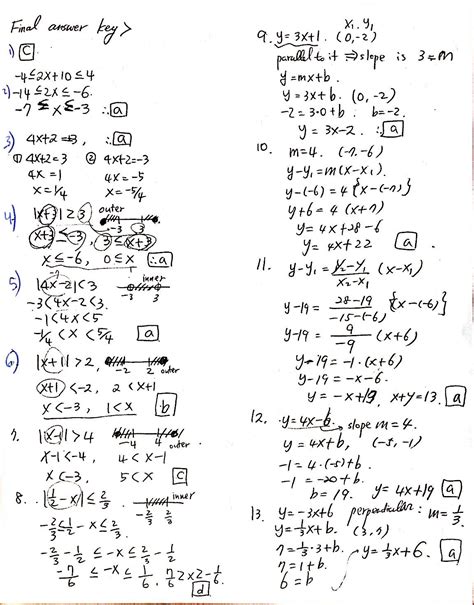 Final answer key >
1) C
-4≤2x+10≤4
2) -14≤2x≤-6.
-7≤x≤-3 ∴ a
3) 4x+2=3, ∴ a
① 4x+2=3 ② 4x+2=-3
4x=1 4x=-5
x=1/4 x=-5/4
4) |x+3|≥3 outer -3 3
x+3≤-3, 3≤x+3
x≤-6, 0≤x ∴ a
5) |4x-2|<3 inner -3 3
-3<4x-2<3
-1<4x<5
-1/4<x<5/4 a
6) |x+1|>2, -2 2 outer
x+1<-2, 2<x+1
x<-3, 1<x b
7. |x-1|>4 -4 4 outer
x-1<-4, 4<x-1
x<-3, 5<x C
8. |1/2-x|≤2/3. -2/3 2/3 inner
-2/3≤1/2-x≤2/3.
-2/3-1/2≤-x≤2/3-1/2
-7/6≤-x≤1/6, 7/6≥x≥-1/6
d
x₁, y₁
9. y=3x+1. (0,-2)
parallel to it ⇒ slope is 3=m
y=mx+b.
y=3x+b. (0,-2)
-2=3·0+b. b=-2.
y=3x-2. ∴ a
10. m=4. (-7,-6)
y-y₁=m(x-x₁).
y-(-6)=4{x-(-7)}
y+6=4(x+7)
y=4x+28-6
y=4x+22 a
11. y-y₁=y₂-y₁/x₂-x₁ (x-x₁)
y-19=28-19/-15-(-6) {x-(-6)}
y-19=9/-9 (x+6)
y-19=-1·(x+6)
y-19=-x-6.
y=-x+13, x+y=13. a
12. y=4x-6. slope m=4.
y=4x+b, (-5,-1)
-1=4·(-5)+b
-1=-20+b
b=19. y=4x+19 a
13. y=-3x+6 perpendicular: m=1/3.
y=1/3x+b. (3,7)
7=1/3·3+b. y=1/3x+6. a
7=1+b.
6=b